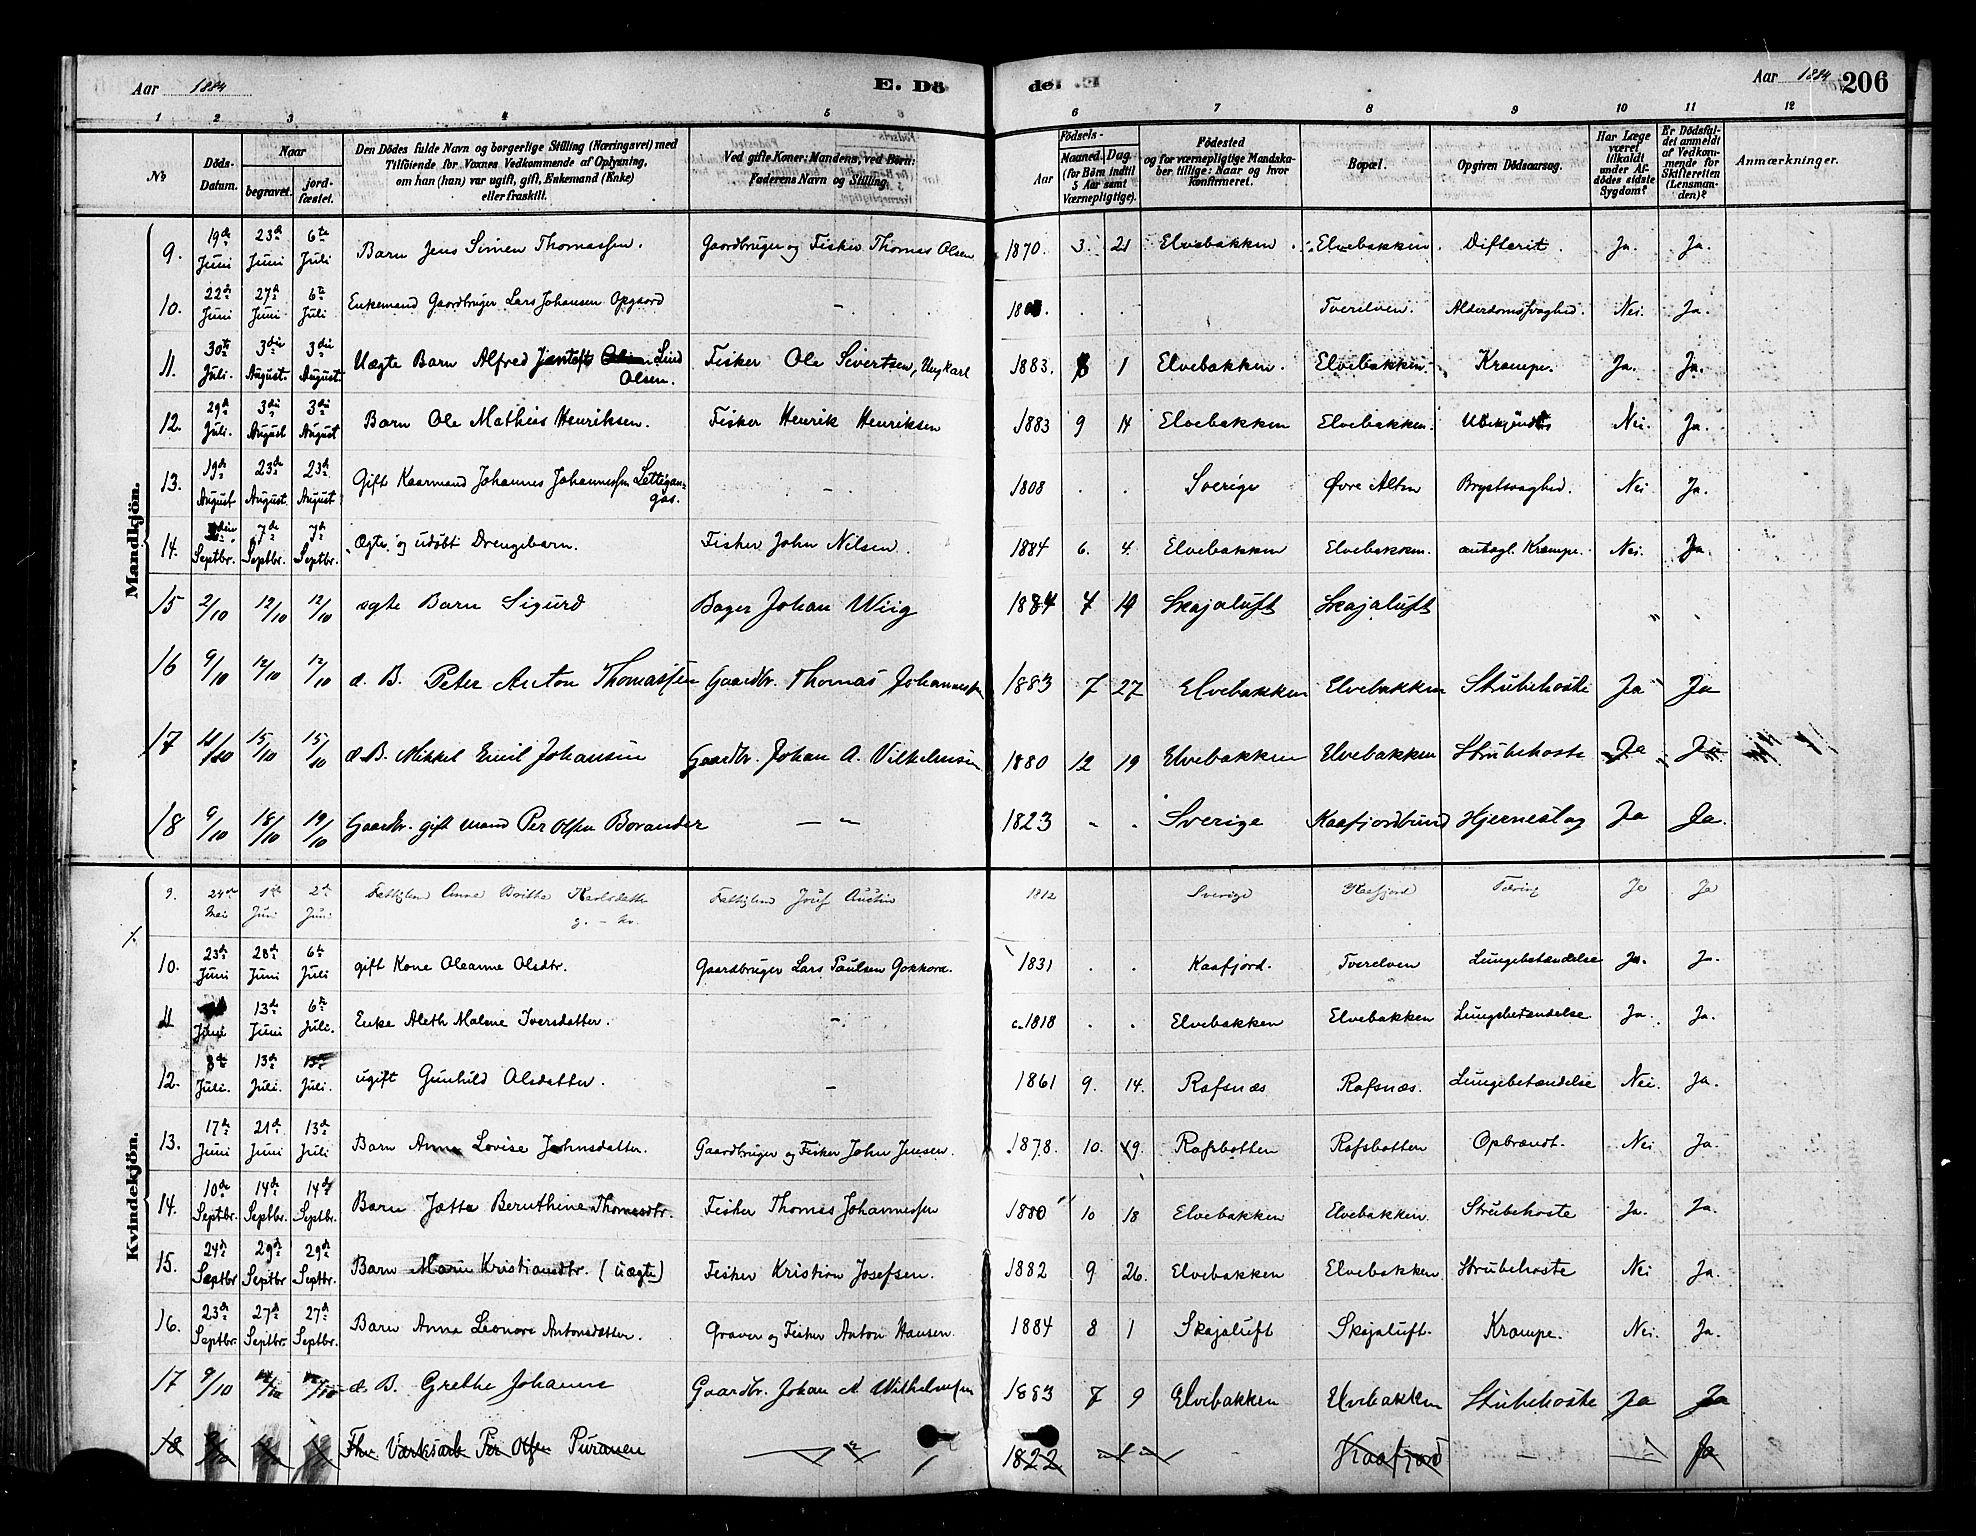 Aar 1884 E. Dö
de. Aar 1884 206
1 2 3 4 5 6 7 8 9 10 11 12
No
Döds-Datum.
Naar
begravet.
jord-fæstet.
Den Dödes fulde Navn og borgerlige Stilling (Næringsvei) med
Tilföiende for Voxnes Vedkommende af Oplysning,
om han (hun) var ugift, gift, Enkemand (Enke)
eller fraskilt.
Ved gifte Koner: Mandens, ved Börn:
Faderens Navn og Stilling.
Födsels-
Aar
Maaned. Dag
(for Börn indtil
5 Aar samt
Værnepligtige).
Födested
og for værnepligtige Mandska-
ber tillige: Naar og hvor
konfirmeret.
Bopæl.
Opgiven Dödsaarsag.
Har Læge
været
tilkaldt
under Af-
dödes sidste
Sygdom?
Er Dödsfal-
det anmeldt
af Vedkom-
mende for
Skifteretten
(Lensman-
den)?
Anmærkninger.
Mandkjön.
9. 19de Juni 23de Juni 6te Juli Barn Jens Simen Thomassen. Gaardbruger og Fisker Thomas Olsen 1870. 3. 21 Elvebakken. Elvebakken. Difterit. Ja. Ja.
10. 22de Juni 27de Juni 6te Juli Enkemand Gaardbruger Lars Johansen Opgaard - . . Tverelven. Alderdomssvaghed. Nei. Ja.
11. 30te Juli. 3die August. 3die August. Uægte Barn Alfred Lind Olsen. Fisker Ole Sivertsen, Ungkarl 1883. 1 Elvebakken. Elvebakken. Krampe. Ja. Ja.
12. 29de Juli. 3die August 3die August Barn Ole Mathias Henriksen. Fisker Henrik Henriksen 1883 9 14 Elvebakken Elvebakken. Ubekjendt Nei. Ja.
13. 19de August 23de August 23de August Gift Kaarmand Johannes Johannessen - 1808 . . Sverige Øvre Alten Brystsvaghed. Nei Ja.
14. Septbr. 7de Septbr. 7de Septbr. Ægte og udöbt Drengebarn. Fisker John Nilsen. 1884 6. 4. Elvebakken Elvebakken. antagl. Krampe. Nei. Ja.
15 2/10 12/10 12/10 ægte Barn Sigurd Bager Johan Wiig 1884 7 19 Skajaluft Skajaluft " "
16 9/10 12/10 12/10 d. B. Peter Anton Thomassen Gaardbr. Thomas Johannessen 1883 7 27 Elvebakken Elvebakken Strubehoste Ja Ja
17 15/10 15/10 d. B. Mikkel Emil Johansen Gaardbr. Johan A. Vilhelmsen 1880 12 19 Elvebakken Elvebakken Strubehoste Ja Ja
18 9/10 18/10 19/10 Gaardbr. gift Mand Per Olsen Borander - " 1823 " " Sverige Kaafjordbund Hjerneslag Ja Ja.
Kvindekjön.
9. 24de Mai 1ste Juni 2de Juni Fattiglem Anne Britha Karlsdatter g. - kv. Fattiglem Josef Austin 1812 Sverige Kaafjord Tæring Ja Ja
10. 23de Juni 28de Juni 6te Juli gift Kone Oleanne Olsdtr. Gaardbruger Lars Paulsen Gokkora. 1831 . . Kaafjord. Tverelven Lungebetændelse Ja. Ja.
11 Juni 13de Juni 6te Juli. Enke Aleth Malene Iversdatter. - c. 1818 . . Elvebakken Elvebakken Lungebetændelse Ja. Ja.
12. 8de Juli. 13de Juli. 13de Juli. ugift Gunhild Olsdatter. - 1861 9. 14. Rafsnæs Rafsnæs. Lungebetændelse Nei. Ja.
13. 17de Juni 21de Juni 13de Juli Barn Anna Lovise Johnsdatter. Gaardbruger og Fisker John Jensen. 1878. 10. 19. Rafsbotten Rafsbotten Opbrændt. Nei Ja.
14. 10de Septbr. 14de Septbr. 14de Septbr. Barn Jætta Beruthine Thomasdtr. Fisker Thomas Johannessen 1880 10 18 Elvebakken Elvebakken. Strubehoste Ja. Ja.
15. 24de Septbr 29de Septbr 29de Septbr. Barn Marie Kristiansdtr. (uægte) Fisker Kristian Josefsen. 1882 9 26. Elvebakken Elvebakken. Strubehoste Nei Ja.
16. 23de Septbr. 27de Septbr. 27de Septbr. Barn Anna Leonore Antonsdatter. Graver og Fisker Anton Hansen. 1884 8 1 Skajaluft Skajaluft. Krampe. Nei. Ja.
17 9/10 d. B. Grethe Johanne Gaardbr. Johan A Wilhelmsen 1883 7 9 Elvebakken Elvebakken Strubehoste Ja Ja
18 Fhv. Værksarb. Per Olsen Puranen " 1822 " " - Kaafjord - Ja